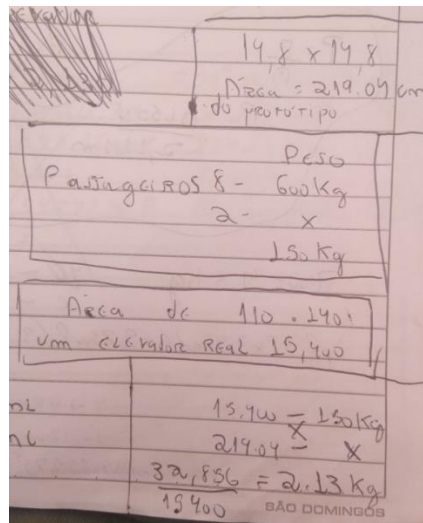 14,8 x 14,8
Área = 219.04 cm
do prototipo
Peso
Passageiros 8 - 600 Kg
2 - x
150 Kg
Área de 110 . 140:
um elevador Real 15,400
15.400 = 150 Kg
219.04 = X
32,856 = 2.13 Kg
15400
SÃO DOMINGOS